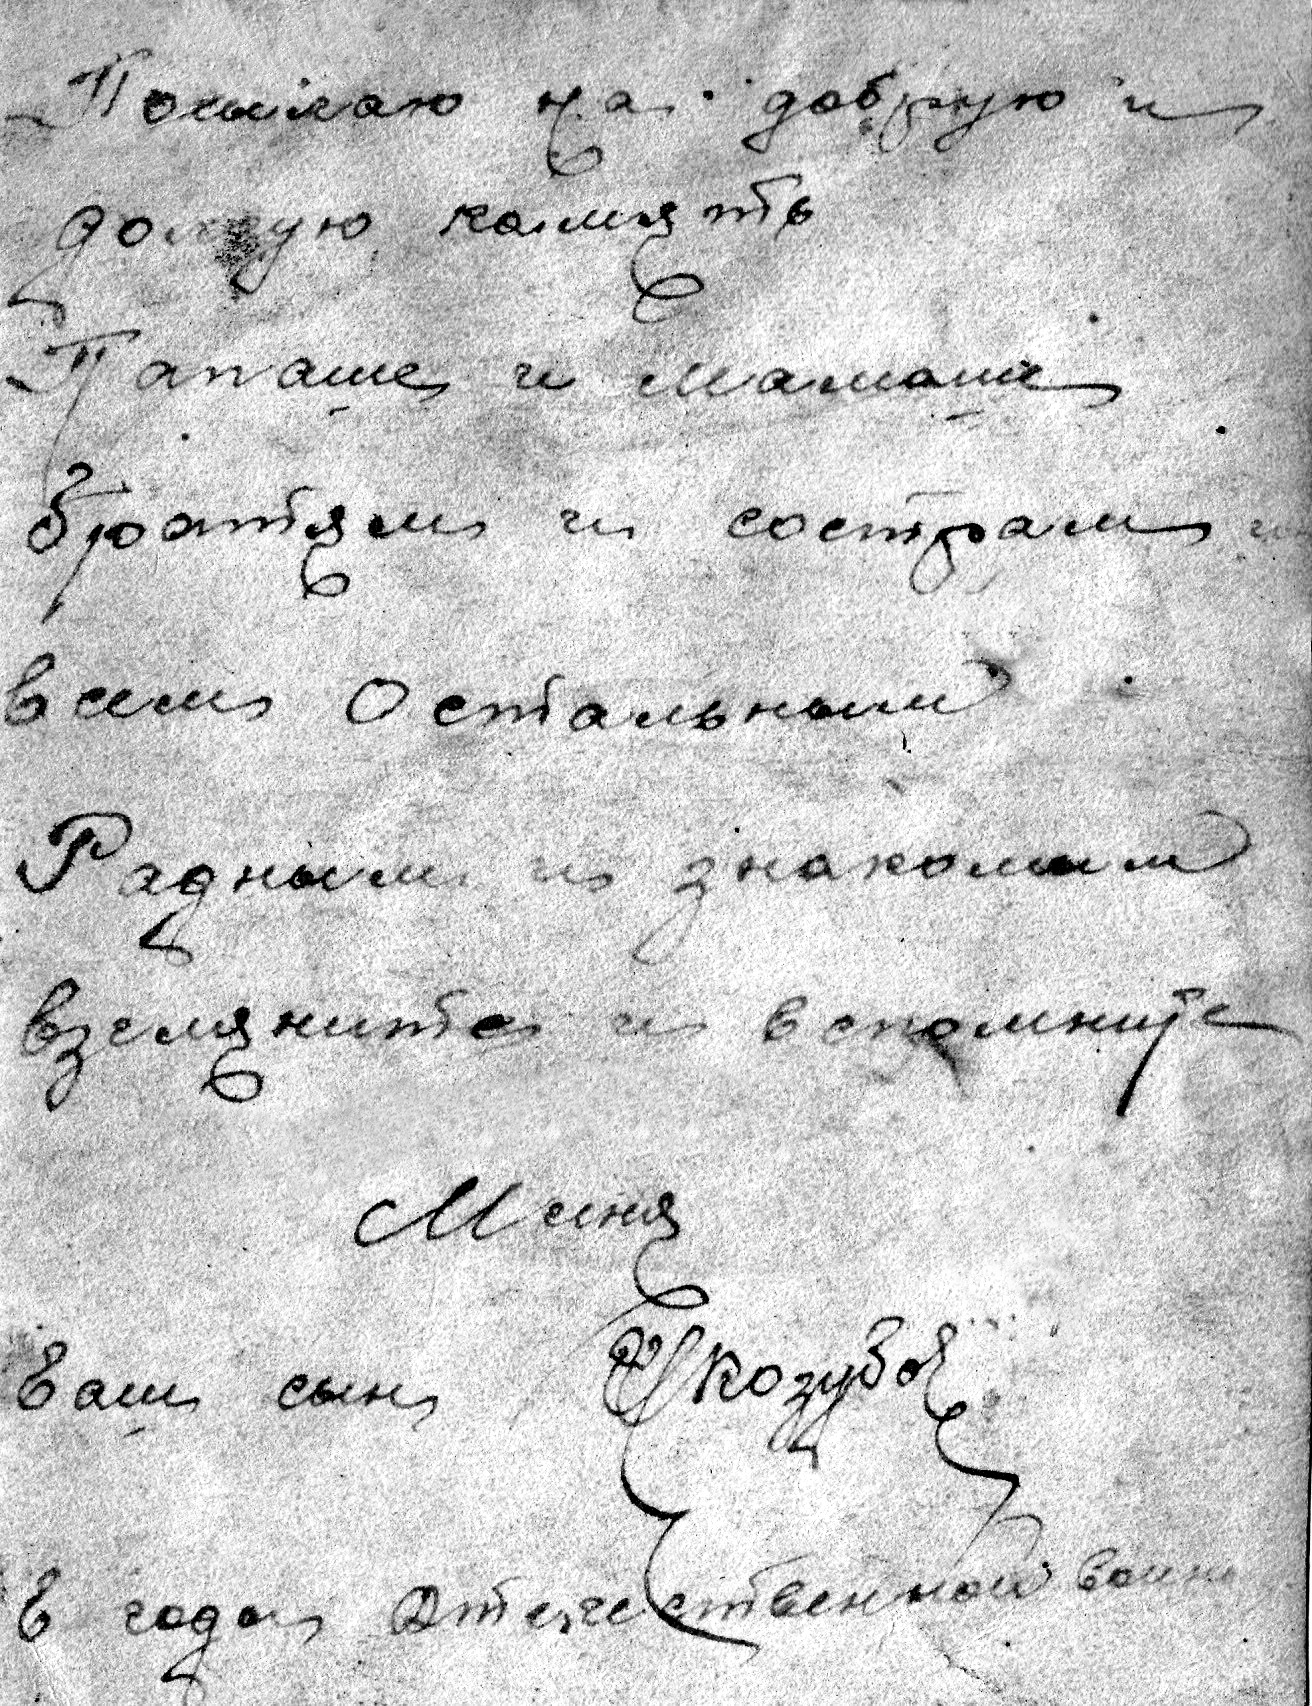 Посылаю на добрую и
долгую память
Папаше и Мамаше
Братям и сострам и
всем Остальным
Радным и знакомым
взгляните и вспомните
Меня
Ваш сын Козубов
В года Отечественной войны